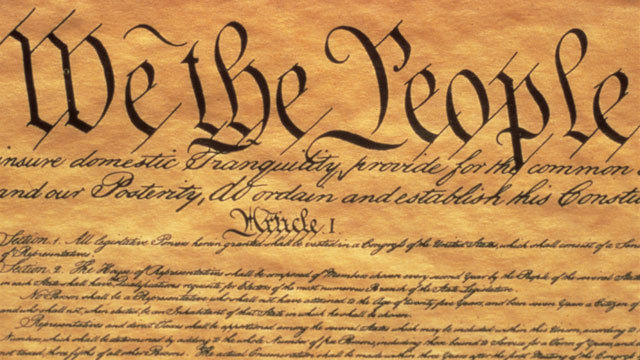 We the People
insure domestic Tranquility, provide for the common
and our Posterity, do ordain and establish this Constitu
Article. I.
Section. 1. All legislative Powers herein granted shall be vested in a Congress of the United States, which shall consist of a Sena
of Representatives.
Section. 2. The House of Representatives shall be composed of Members chosen every second Year by the People of the several States
in each State shall have Qualifications requisite for Electors of the most numerous Branch of the State Legislature.
No Person shall be a Representative who shall not have attained to the Age of twenty five Years, and been seven Years a Citizen of
and who shall not, when elected, be an Inhabitant of that State in which he shall be chosen.
Representatives and direct Taxes shall be apportioned among the several States which may be included within this Union, according to
Numbers, which shall be determined by adding to the whole Number of free Persons, including those bound to Service for a Term of Years, and
not taxed, three fifths of all other Persons. The actual Enumeration shall be made within three Years after the first